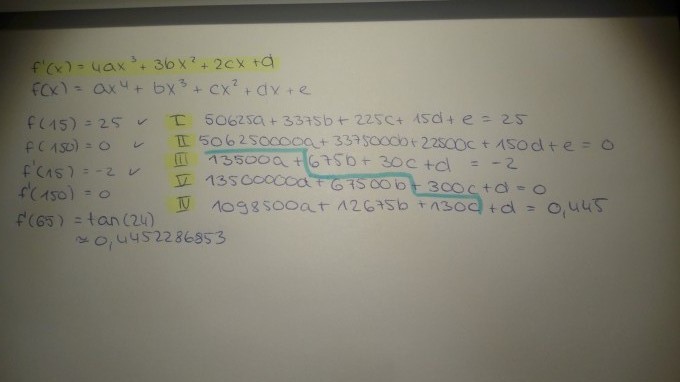 f'(x) = 4ax³ + 3bx² + 2cx + d
f(x) = ax⁴ + bx³ + cx² + dx + e
f(15) = 25 ✓ I 50625a + 3375b + 225c + 15d + e = 25
f(150) = 0 ✓ II 506250000a + 3375000b + 22500c + 150d + e = 0
f'(15) = -2 ✓ III 13500a + 675b + 30c + d = -2
f'(150) = 0 V 13500000a + 67500b + 300c + d = 0
f'(65) = tan(24) IV 1098500a + 12675b + 130c + d = 0,445
≈ 0,4452286853